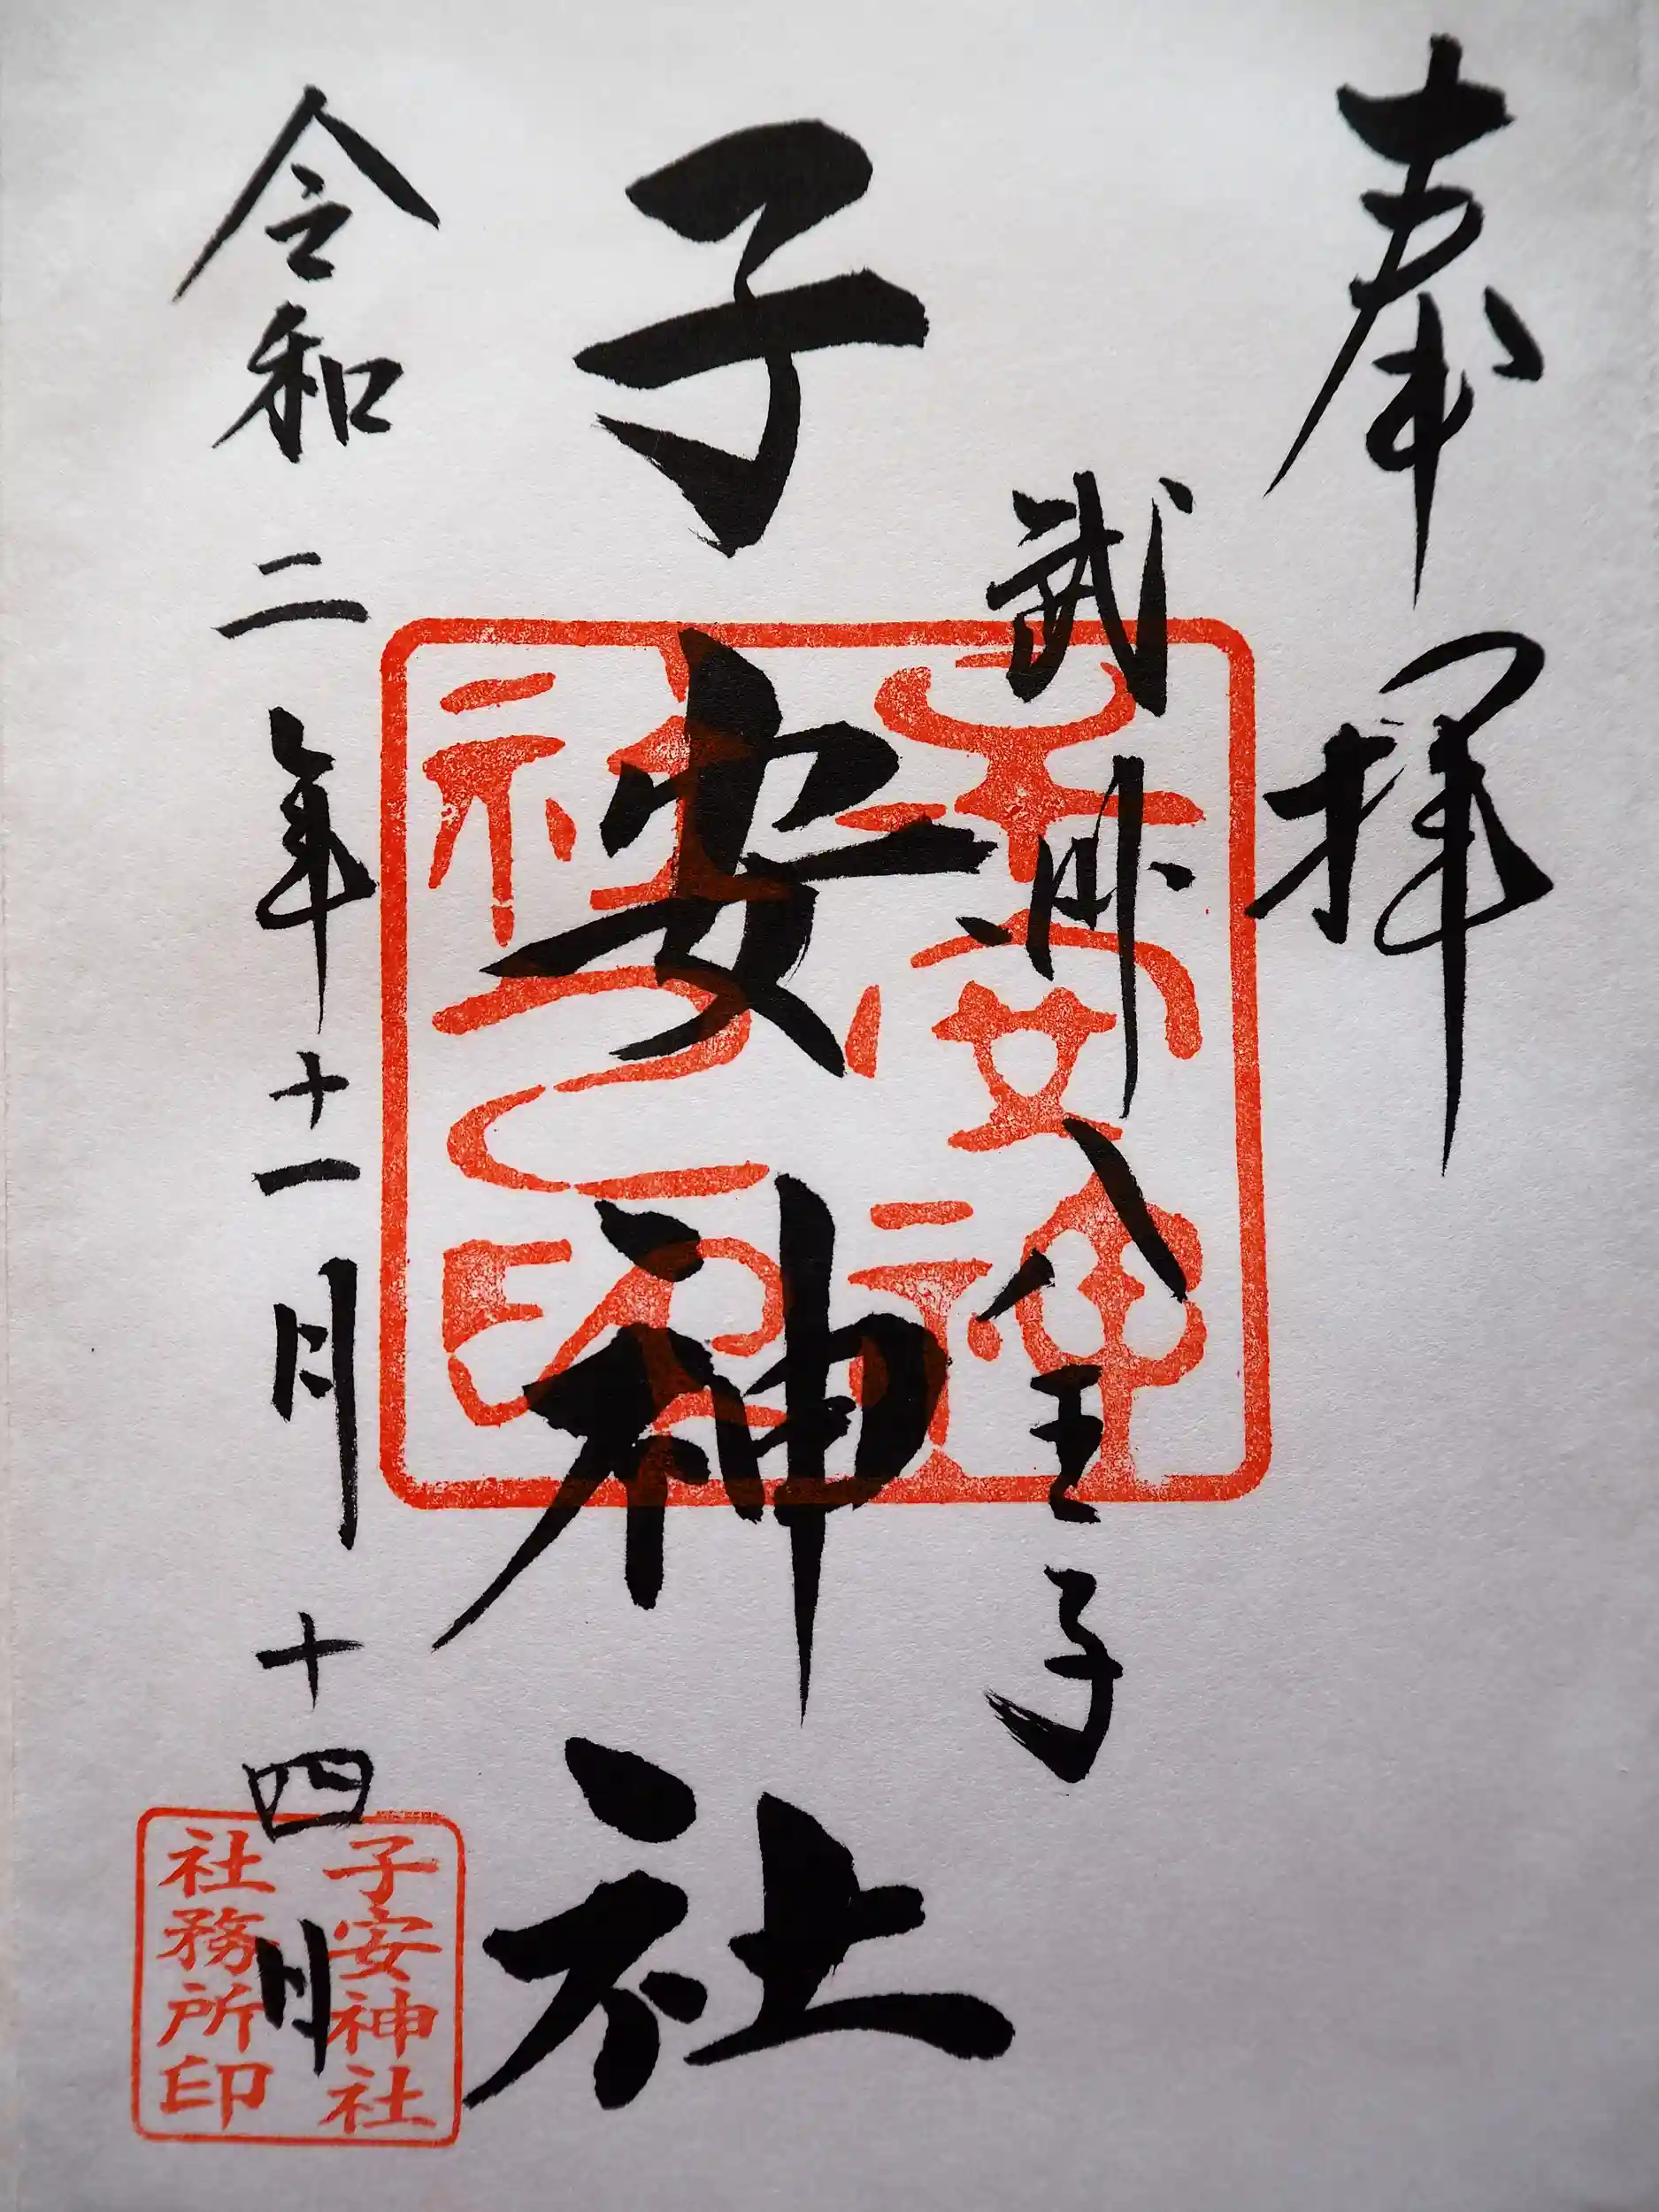 奉拝
武州八王子
子安神社
令和二年十一月十四日
子安神
社之印
子安神社
社務所印